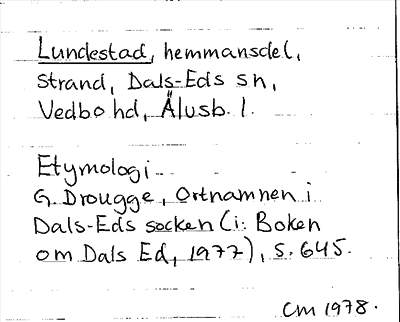 Lundestad, hemmansdel,
Strand, Dals-Eds sn,
Vedbo hd, Älvsb. l.
Etymologi
G. Drougge, Ortnamnen i
Dals-Eds socken (i: Boken
om Dals Ed, 1977), s. 645.
CM 1978.